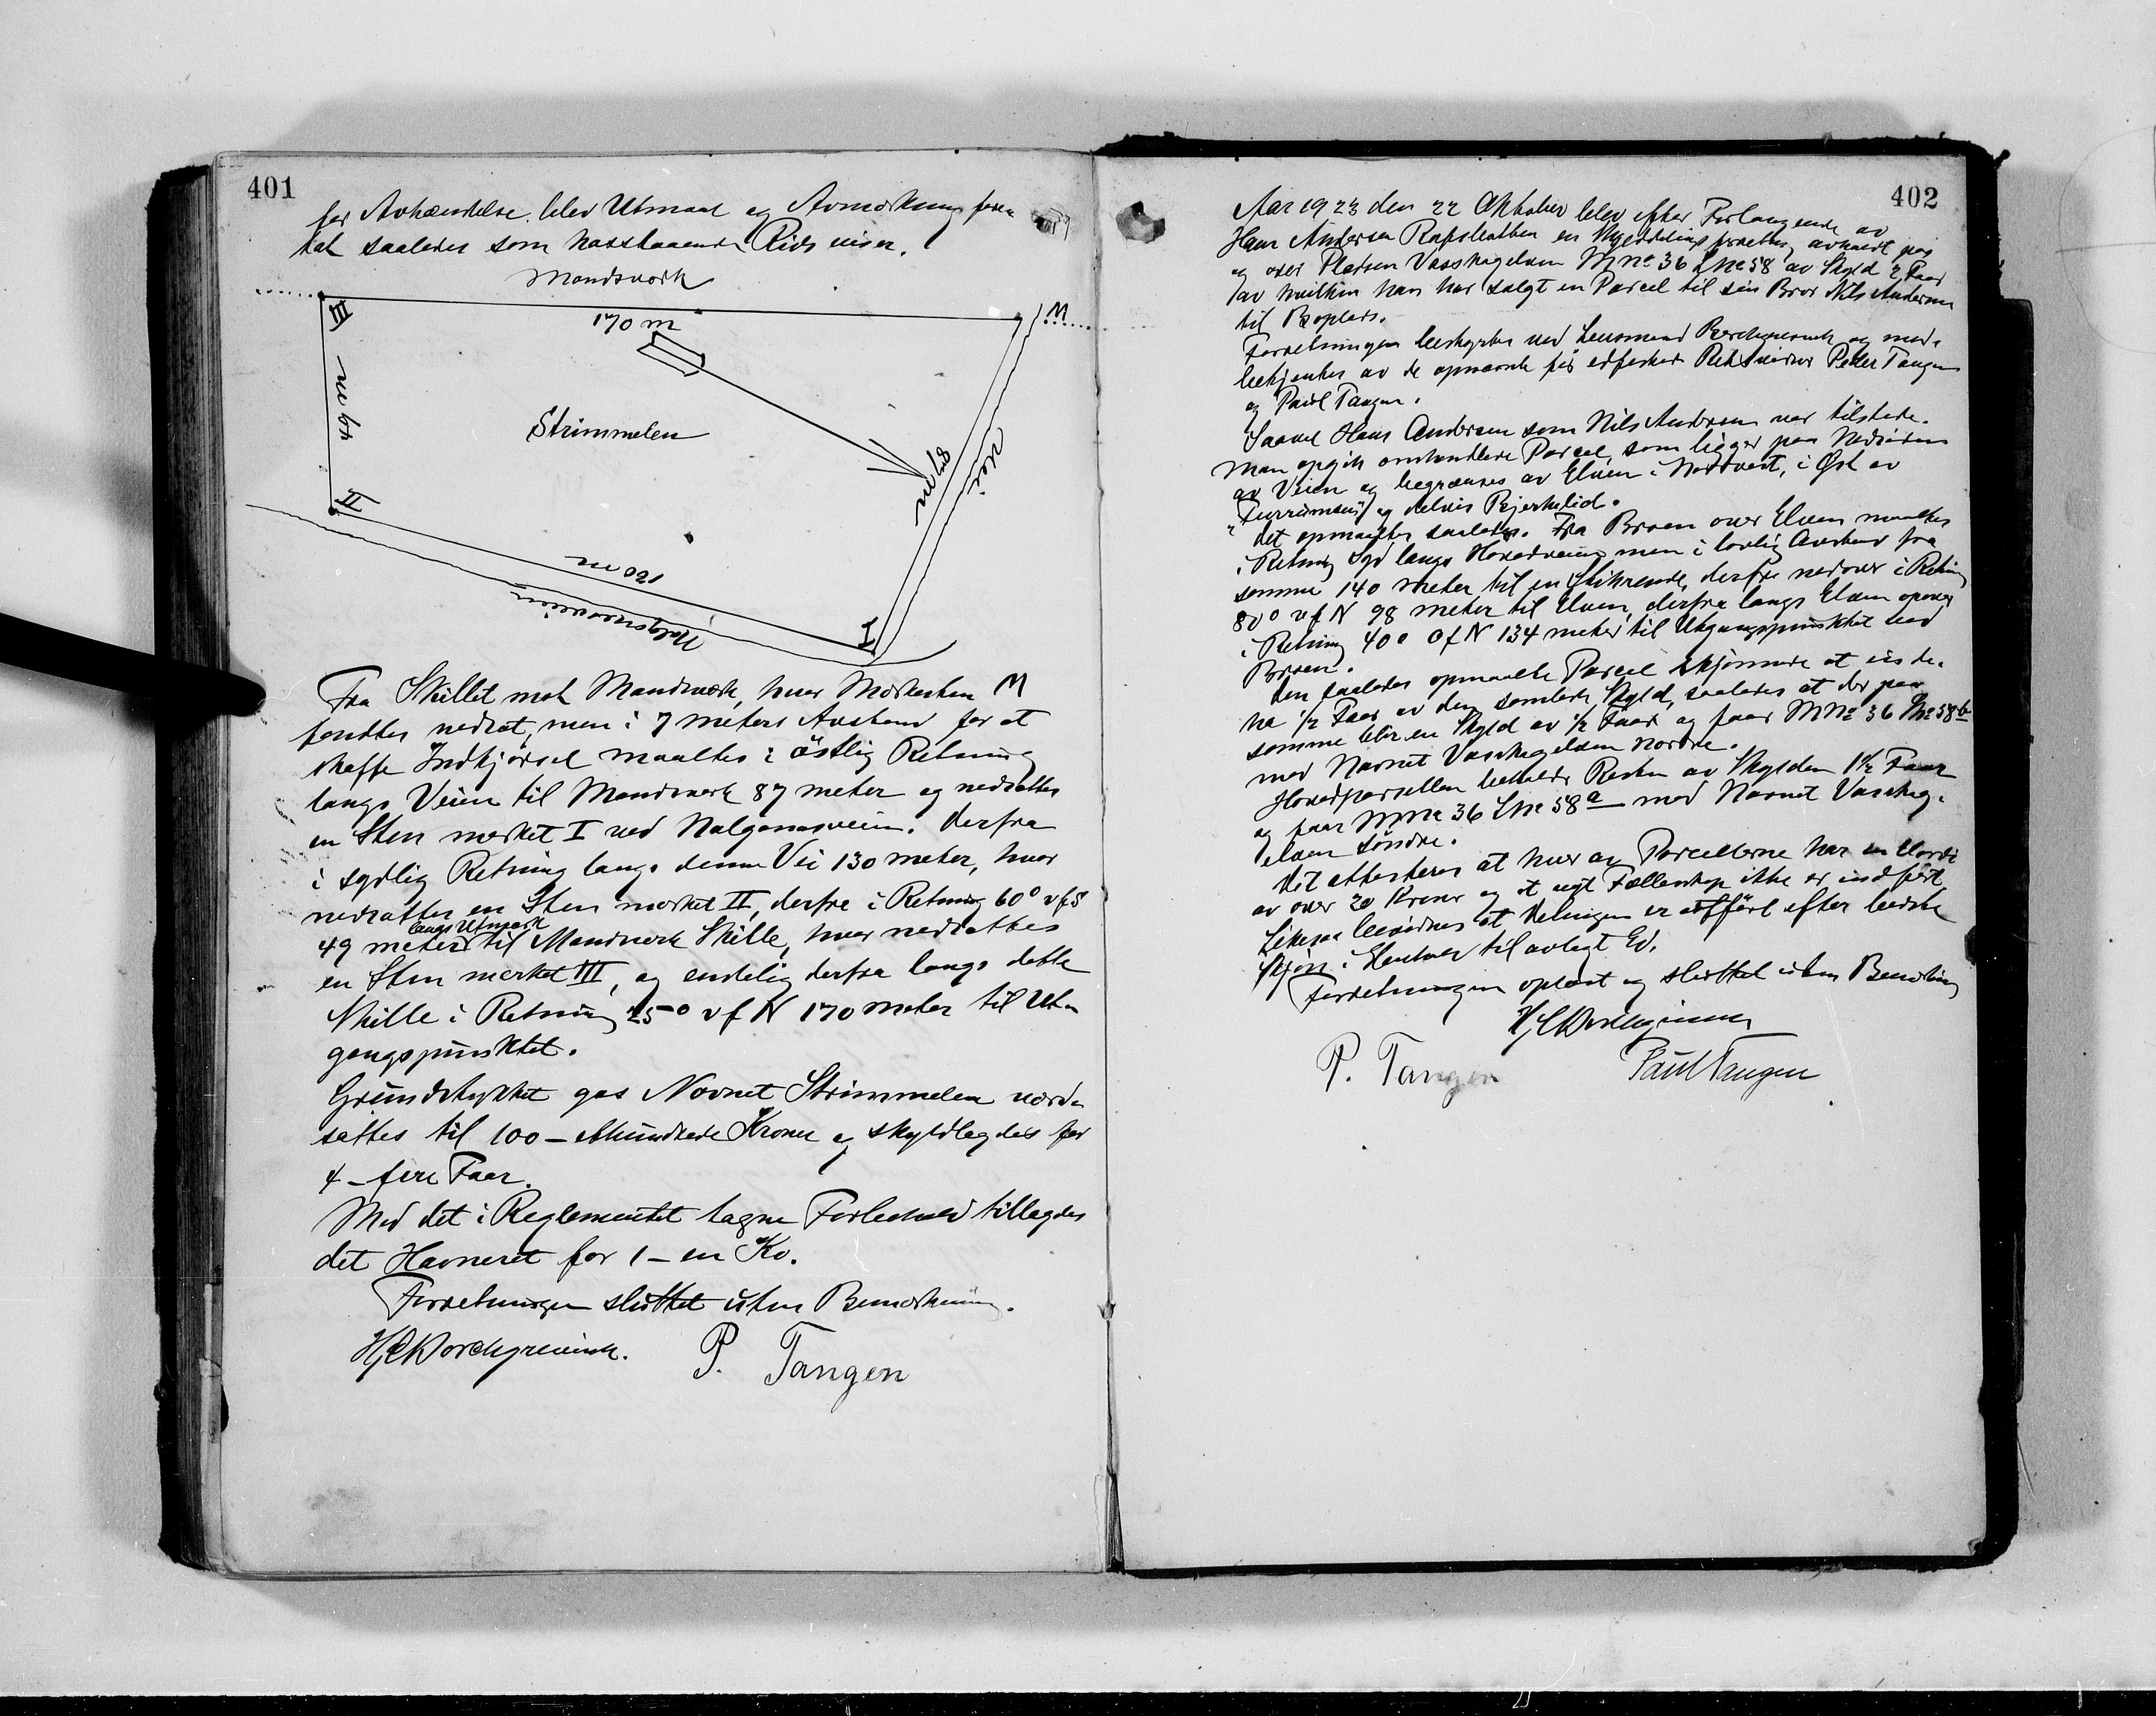 401
for Avhændelse. blev Utmaal og Avmerkning fore-
tat saaledes som hosstaaende Rids viser.
Mandsverk
III
170 m
M
49 m
Strimmelen
87 m
Vei
II
130 m
I
Fra Skillet mot Mandsverk, hvor Merkesten M
fandtes nedsat, men i 7 meters Avstand for at
skaffe Indkjørsel maaltes i östlig Retning
langs Veien til Mandsverk 87 meter og nedsattes
en Sten merket I ved Nalganasveien. Derfra
i sydlig Retning langs denne Vei 130 meter, hvor
nedsattes en Sten merket II, derfra i Retning 60° v f S
langs Utmark
49 meter til Mandsverk Skille, hvor nedsattes
en Sten merket III, og endelig derfra langs dette
Skille i Retning 25° v f N 170 meter til Ut-
gangspunktet.
Grundstykket gas Navnet Strimmelen værd-
sattes til 100 – ethundrede Kroner og skyldlagdes for
4 – fire Faar.
Med det i Reglementet tagne Forbehold tillagdes
det Havneret for 1 – en Ko.
Forretningen sluttet uten Bemerkning.
Hj Borchgrevink. P. Tangen
402
Aar 1923 den 22 Oktober blev efter Forlangende av
Hans Andersen en Skylddelingsforretning avholdt paa
og over Pladsen Vasskogelven M No 36 L No 58 av Skyld 2 Faar
av hvilken han har solgt en Parcel til sin Bror Nils Andersen
til Boplads.
Forretningen bestyrtes ved Lensmand Borchgrevink og med-
betjentes av de opnævnte før edfestede Retsvidner Peder Tangen
og Paul Tangen.
Saavel Hans Andersen som Nils Andersen var tilstede.
Man opgik omhandlede Parcel, som ligger paa Nedsiden
av Veien og begrænses av Elven i Nordvest, i Øst av
"Furrumoen" og delvis Bjerkelid.
Det opmaaltes saaledes. Fra Broen over Elven maaltes
i Retning Syd langs Hovedveien men i lovlig Avstand fra
samme 140 meter til en Stikrende, derfra nedover i Retning
80° v f N 98 meter til Elven, derfra langs Elven opover
i Retning 40° Ø f N 134 meter til Utgangspunktet ved
Broen.
Den saaledes opmaalte Parcel skjønnede at
ha 1/2 Faar av den samlede Skyld, saaledes at der paa
samme blir en Skyld av 1/2 Faar og faar M No 36 L No 58 b
med Navnet Vasskogelven nordre.
Hovedparsellen beholder Resten av Skylden 1 1/2 Faar
og faar M No 36 L No 58 a med Navnet Vasskog-
elven søndre.
Det attesteres at hver av Parcellerne har en Værdi
av over 20 Kroner og at nyt Fællesskap ikke er indført
Likesaa bevidnes at Delingen er utført efter bedste
Skjøn i Henhold til avlagt Ed.
Forretningen oplæst og sluttet uten Bemerkning
Hj Borchgrevink
P. Tangen Paul Tangen